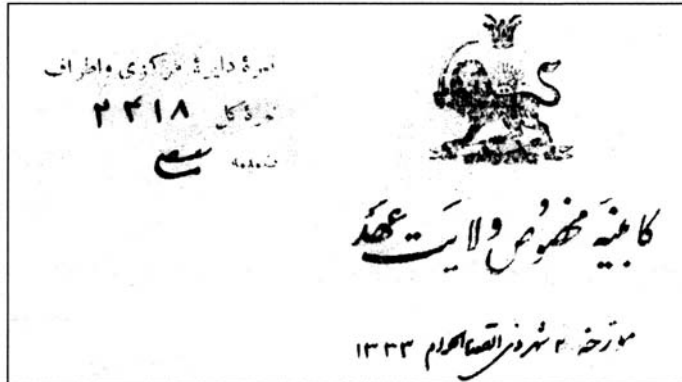 نمرهٔ دایرهٔ مرکزی و اطراف
نمرهٔ کل ۲۴۱۸
ضمیمه
کابینهٔ مخصوص ولایت عهد
مورخهٔ ۲ شهر ذی القعدة الحرام ۱۳۳۳